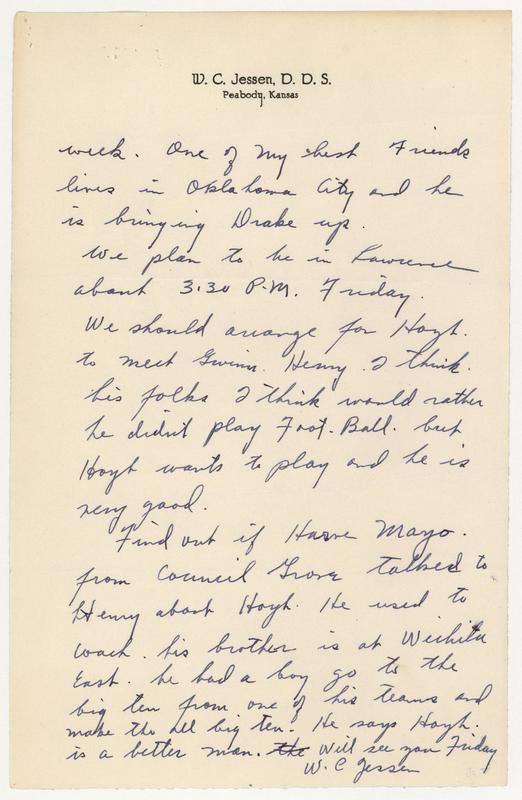 W. C. Jessen, D. D. S.
Peabody, Kansas
week. One of my best Friends
lives in Oklahoma City and he
is bringing Drake up.
We plan to be in Lawrence
about 3:30 P.M. Friday.
We should arrange for Hoyt.
to meet Gwinn. Henry. I think.
his folks I think would rather
he didn't play Foot. Ball. but
Hoyt wants to play and he is
very good.
Find out if Harve Mayo.
from Council Grove talked to
Henry about Hoyt. He used to
coach. his brother is at Wichita
East. he had a boy go to the
big ten from one of his teams and
made the all big ten. He says Hoyt.
is a better man. the Will see you Friday
W. C Jessen